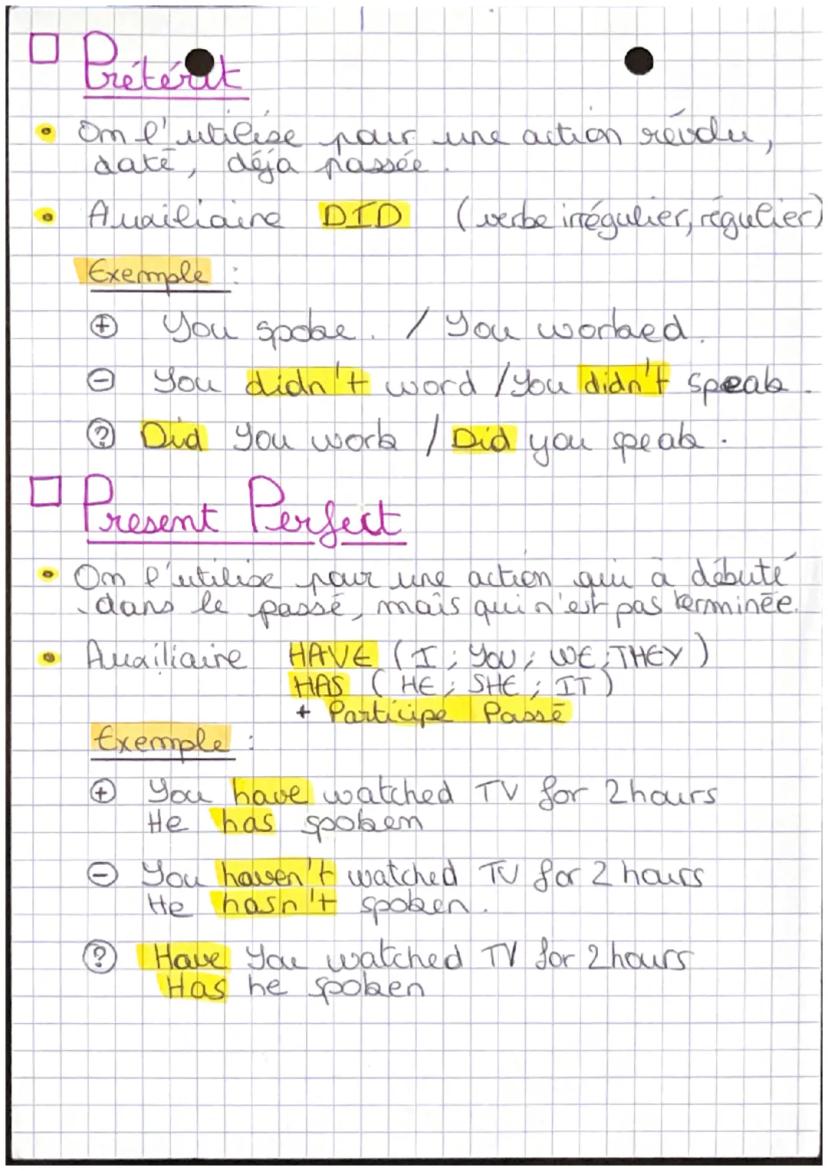 Prétérit
• On l'utilise pour une action révolu,
daté, déja passée.
• Auxiliaire DID (verbe irrégulier, régulier)
Exemple :
⊕ You spoke. / You worked.
⊖ You didn't word / You didn't speak.
? Did you work / Did you speak.
Present Perfect
• On l'utilise pour une action qui à débuté
dans le passé, mais qui n'est pas terminée.
• Auxiliaire HAVE (I ; YOU ; WE ; THEY)
HAS (HE ; SHE ; IT)
+ Participe Passé
Exemple :
⊕ You have watched TV for 2 hours
He has spoken
⊖ You haven't watched TV for 2 hours
He hasn't spoken.
? Have You watched TV for 2 hours
Has he spoken